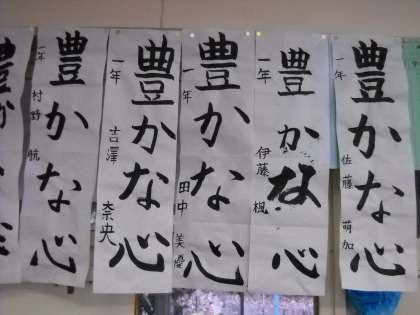 豊かな心
一年 佐藤 萌加
豊かな心
一年 伊藤 楓
豊かな心
一年 田中 美優
豊かな心
一年 吉澤 奈央
豊かな心
一年 村野 航